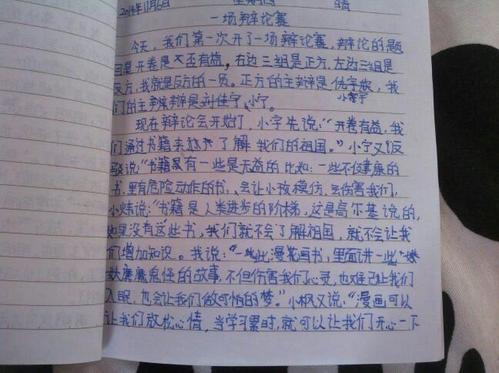 2014年11月6日 星期四 晴
一场辩论赛
今天，我们第一次开了一场辩论赛，辩论的题
目是开卷是不丕有益，右边三组是正方，左边三组是
反方，我就是反方的一员。正方的主辩是
们的主辩是刘佳宁、小宁。
现在辩论会开始了，小宇先说：“开卷有益，我
们通过书籍来了解我们的祖国。”小宁又反
驳说：“书籍有一些是无益的比如：一些不健康的
书，里有危险动作的书，会让小孩模仿，会伤害我们，
小炜说：“书籍是人类进步的阶梯，这是高尔基说的，
如果没有这些书，我们就不会了解祖国，就不会让我
们增加知识。我说：“一些漫画书，里面讲一些
妖魔鬼怪的故事，不但伤害我们心灵，也难已让我们
入眠，也会让我们做可怕的梦。”小枫又说：“漫画可以
让我们放松心情，当学习累时，就可以让我们开心一下